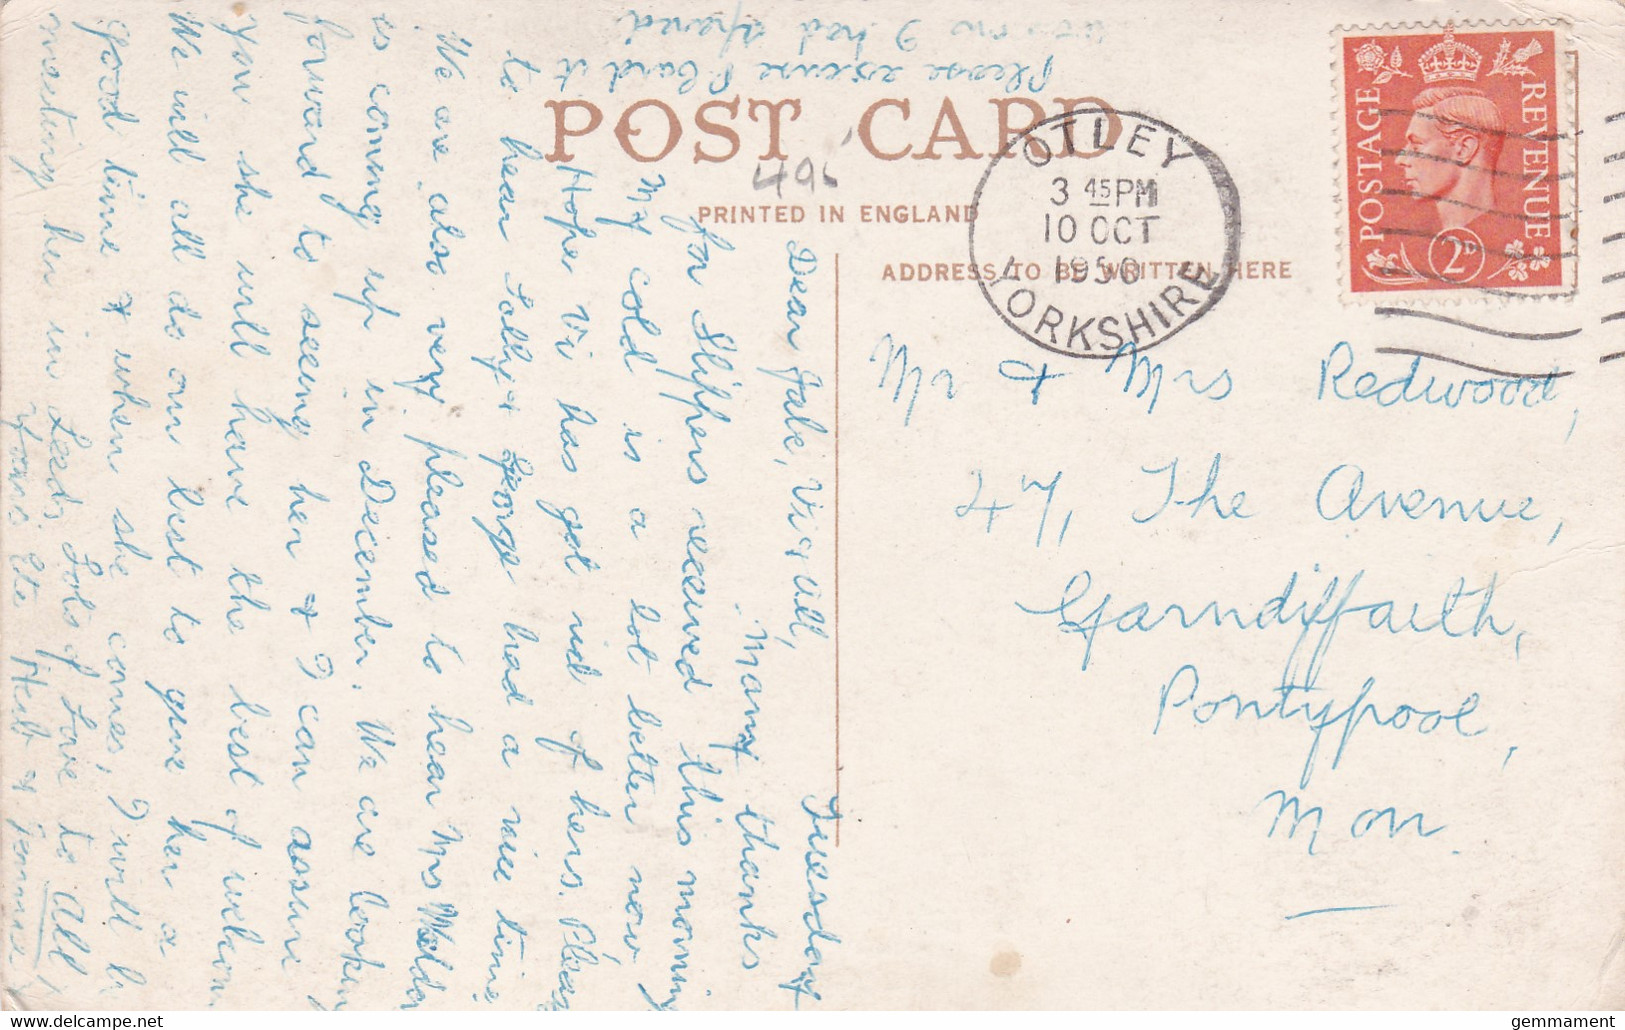 POST CARD
PRINTED IN ENGLAND
ADDRESS TO BE WRITTEN HERE
OTLEY
3 45 PM
10 OCT
1950
YORKSHIRE
POSTAGE
REVENUE
2D
Mr & Mrs Redwood,
47, The Avenue,
Garndiffaith,
Pontypool,
Mon.
Tuesday
Dear Jack, Vi & all,
Many thanks
for Slippers received this morning
My cold is a lot better now,
Hope Vi has got rid of hers. Pleas
to hear Tolly & George had a nice time
We are also very pleased to hear Mrs
is coming up in December. We are looking
forward to seeing her & I can assure
you she will have the best of welcom
We will all do our best to give her a
good time & when she comes, I will b
meeting her in Leeds. Lots of Love to All
Yours Ete Herb &
Please excuse P. Card it
I had spared
to see wishpeltewishes.com
gemmament